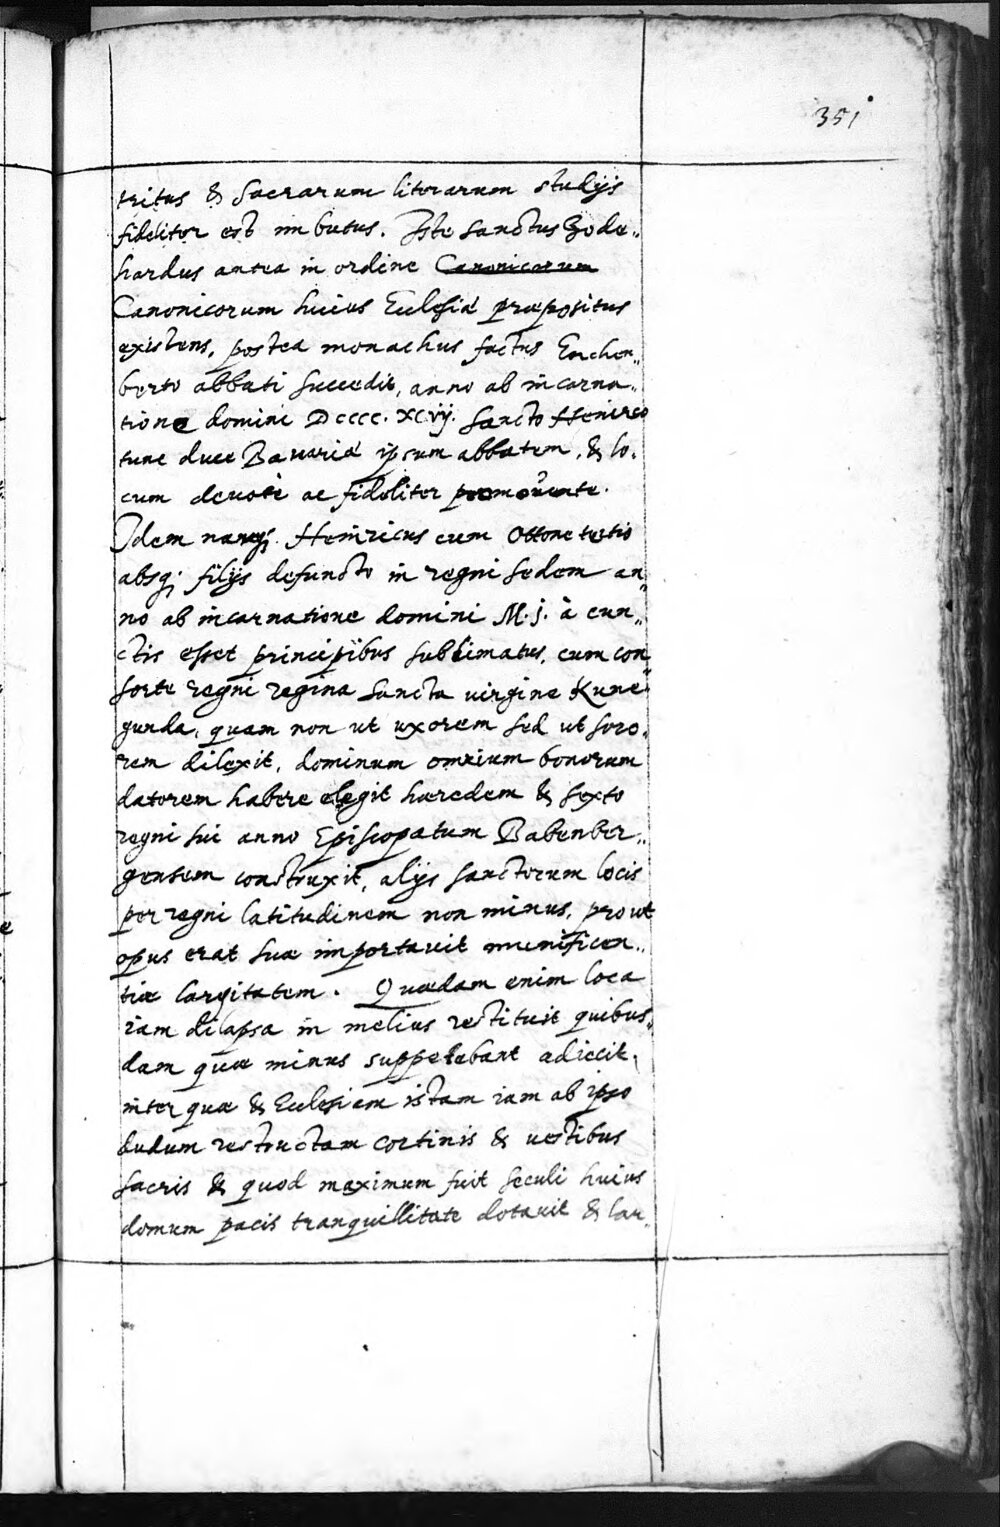 351
tritus & sacrarum literarum studijs
fideliter est imbutus. Iste sanctus Gode„
hardus antea in ordine Canonicorum
Canonicorum huius Ecclesiæ præpositus
existens, postea monachus factus Enchen„
berto abbati succedit, anno ab incarna„
tione domini Dcccc. xcvij. Sancto Heinrico
tunc duce Bavariæ ipsum abbatem, & lo„
cum devotè ac fideliter promovente.
Idem namq; Heinricus cum Ottone tertio
absq; filijs defuncto in regni sedem an„
no ab incarnatione domini M.j. à cun„
ctis esset principibus sublimatus, cum con„
sorte regni regina sancta virgine Kune„
gunda, quam non ut uxorem sed ut soro„
rem dilexit, dominum omnium bonorum
datorem habere elegit hæredem & sexto
regni sui anno Episcopatum Babenber„
gensem construxit, alijs sanctorum locis
per regni latitudinem non minus, prout
opus erat suæ importavit munificen„
tiæ largitatem. Quædam enim loca
iam dilapsa in melius restituit quibus„
dam quæ minus suppetebant adiecit,
inter quæ & Ecclesiam istam iam ab ipso
dudum restructam cortinis & vestibus
sacris & quod maximum fuit seculi huius
domum pacis tranquillitate dotavit & lar„